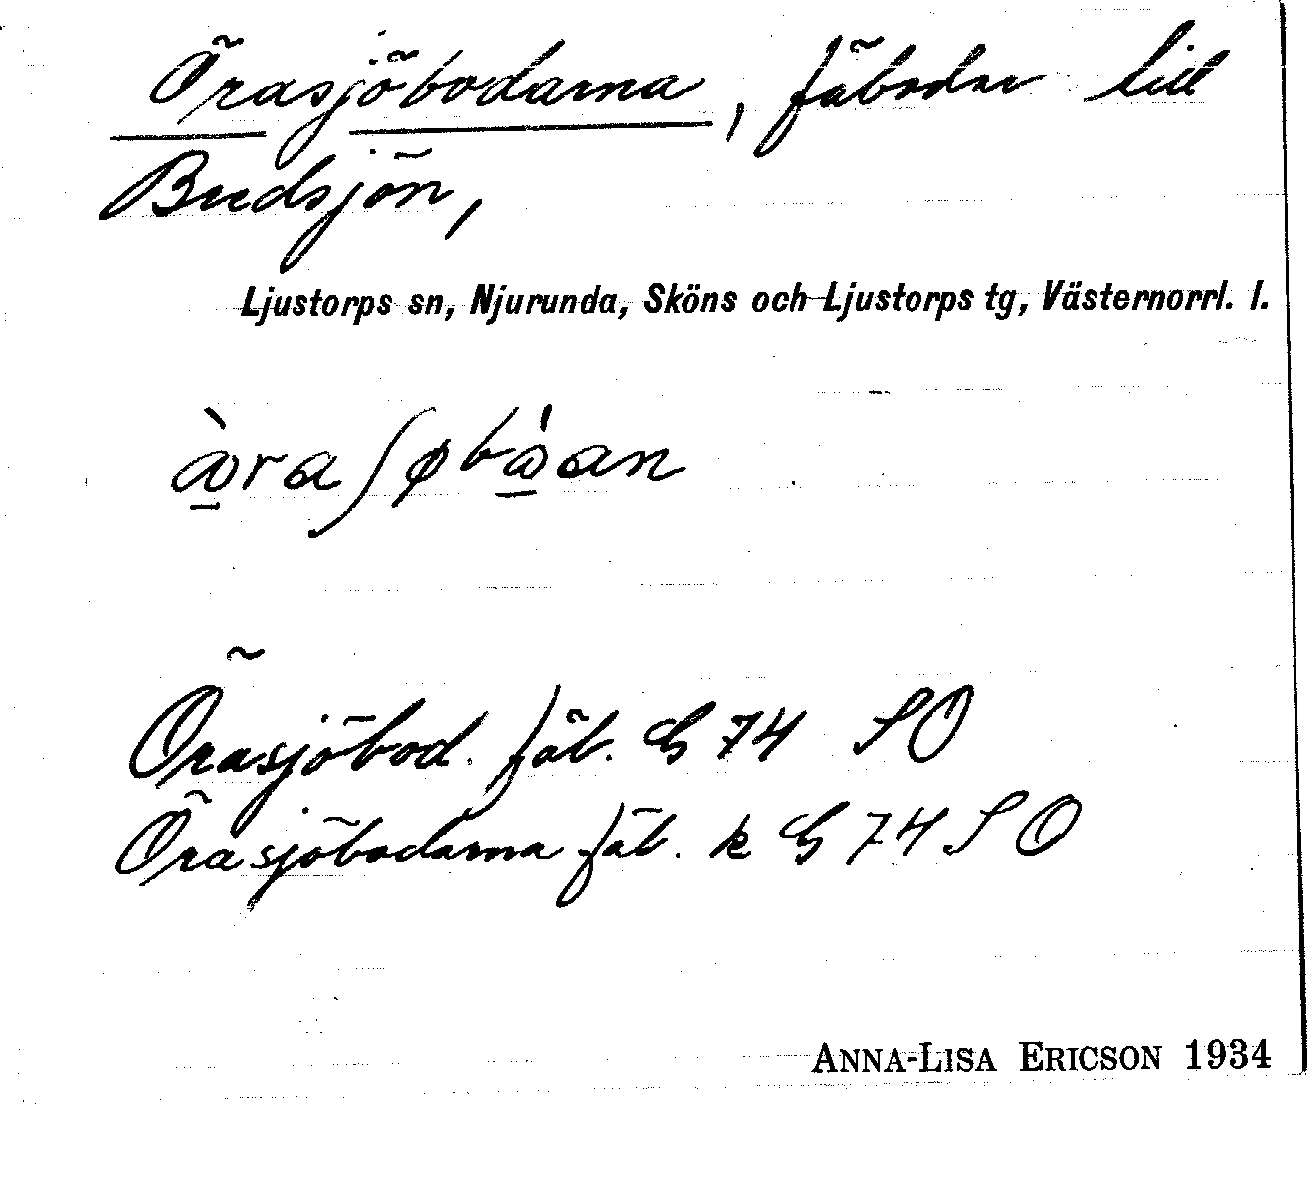 Örasjöbodarna, fäbodar till
Bredsjön,
Ljustorps sn, Njurunda, Sköns och Ljustorps tg, Västernorrl. l.
Örasjöbod. fäb. G 74 SO
Örasjöbodarna fäb. k G 74 SO
ANNA-LISA ERICSON 1934